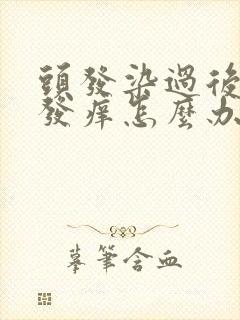 頭發染過後
發癢怎麼办
摹筆含血